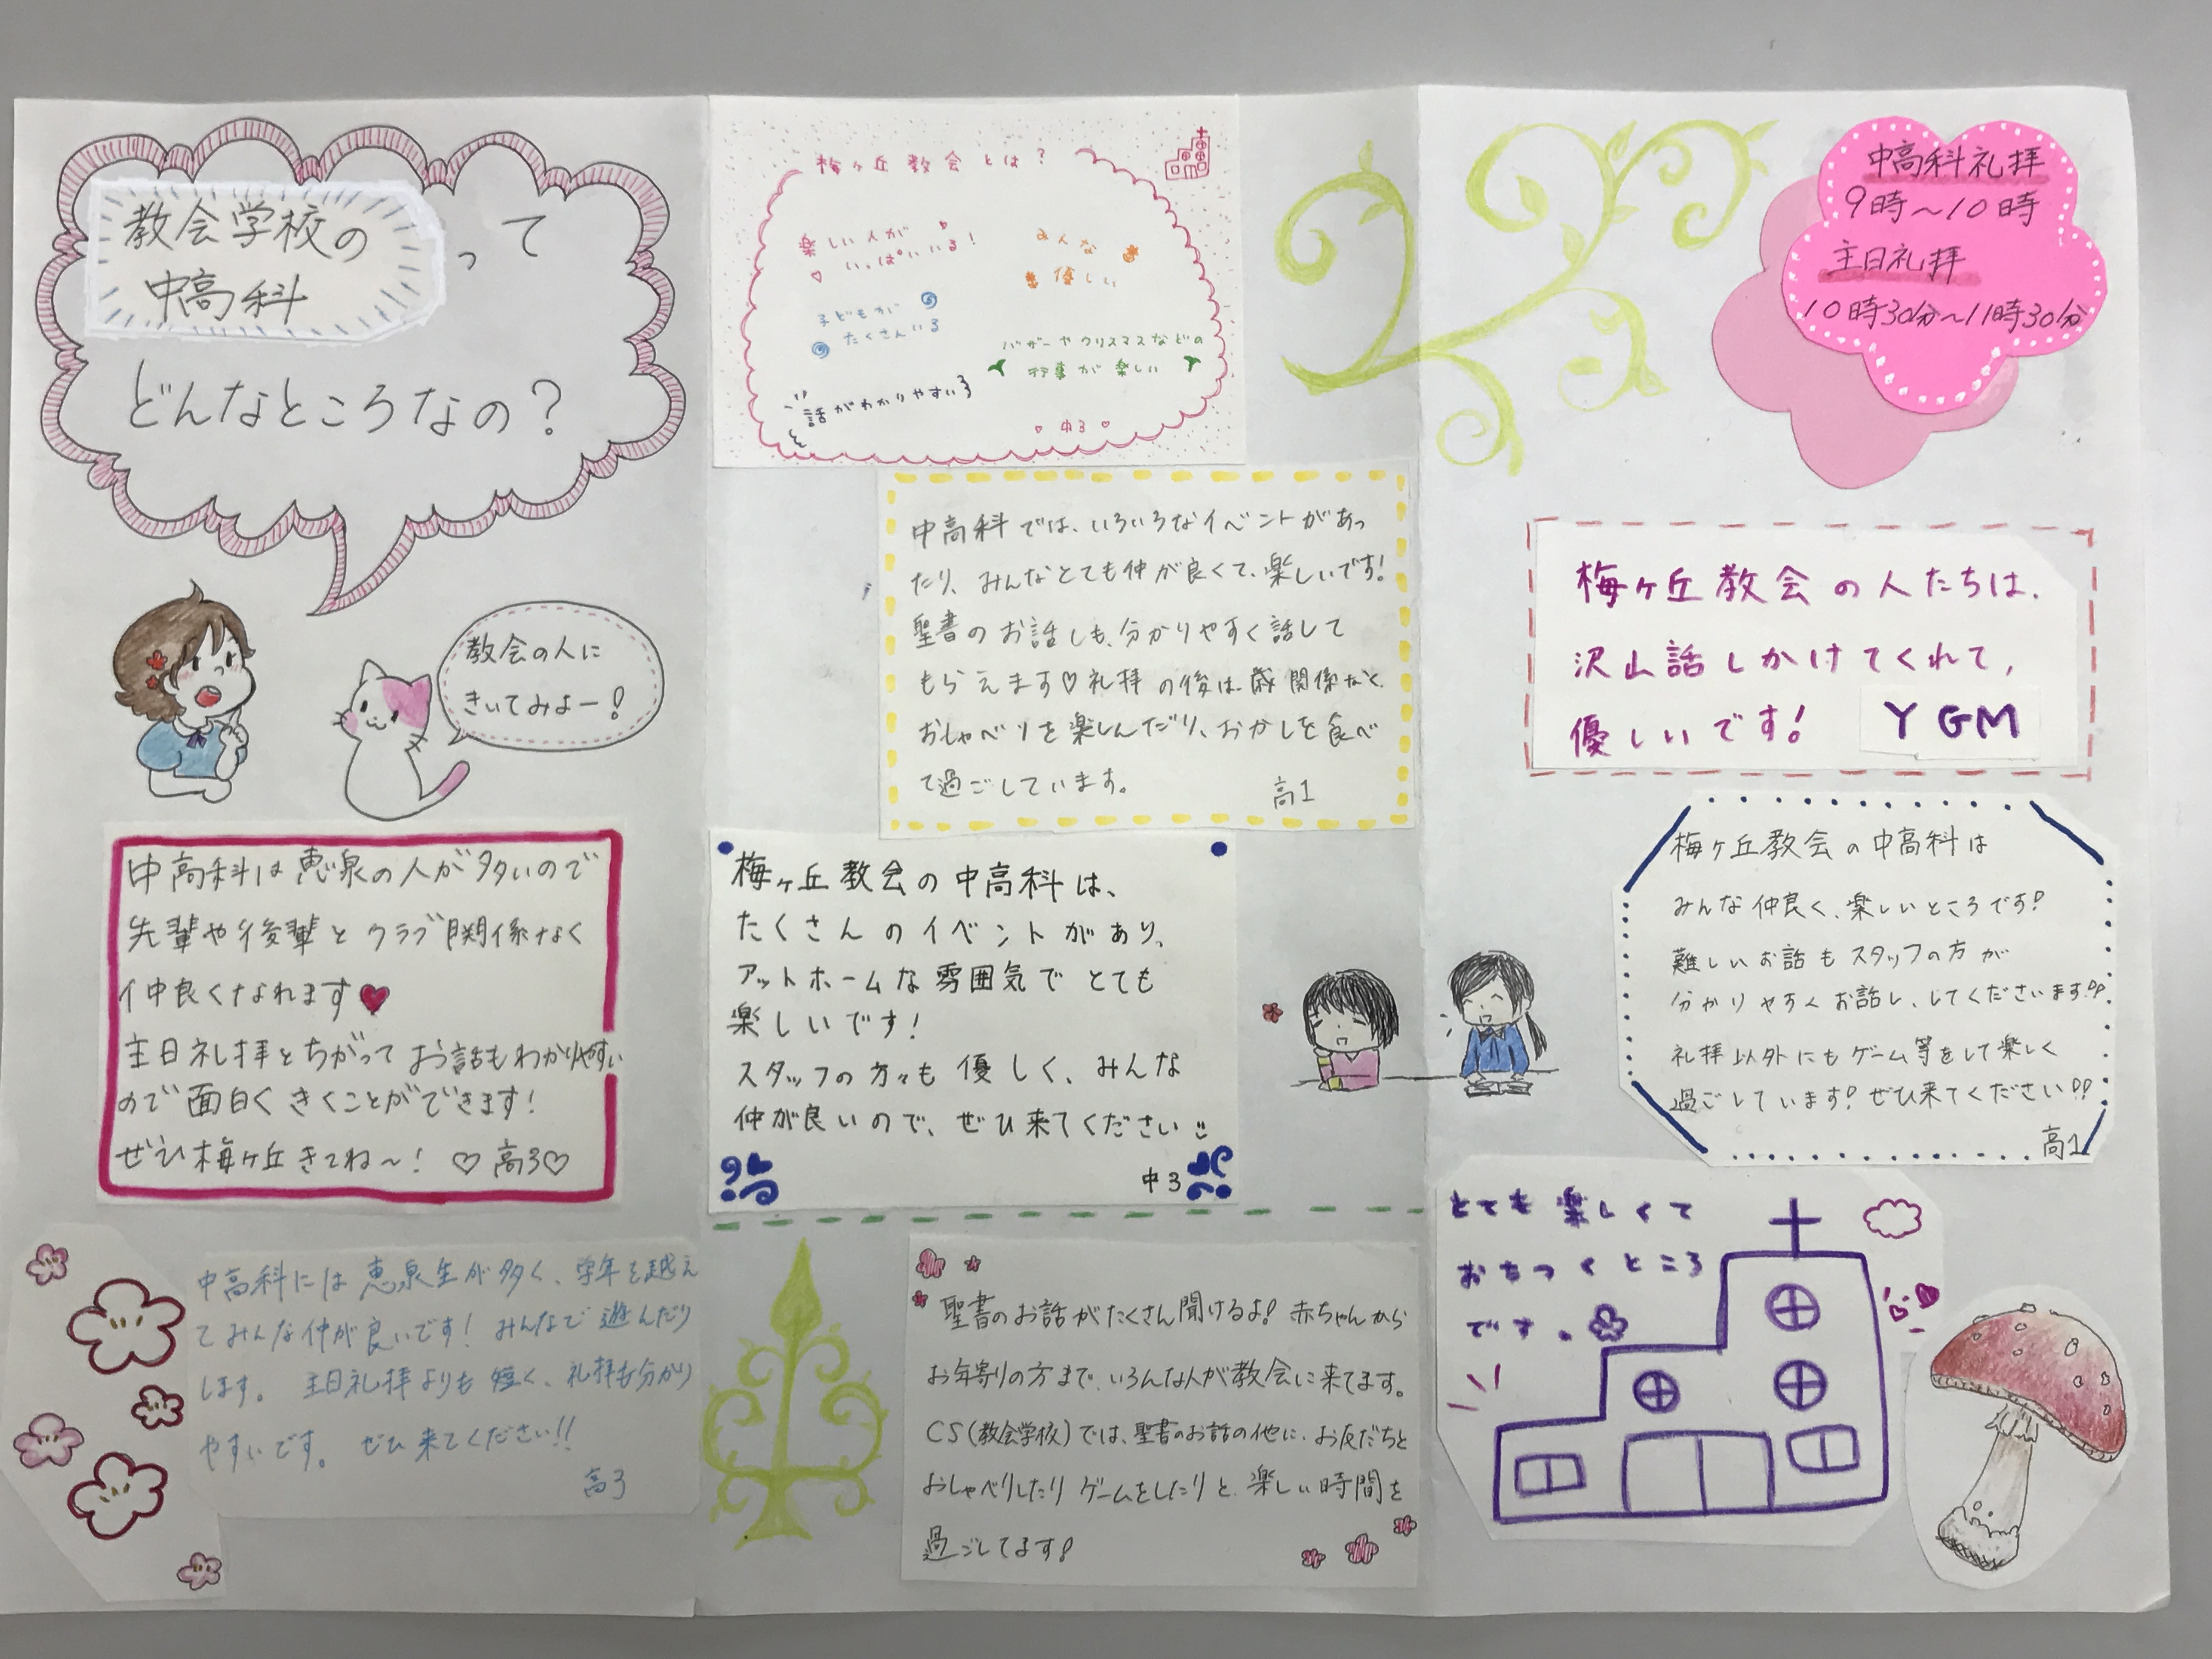 教会学校の
中高科
って
どんなところなの？
教会の人に
きいてみよー！
中高科は恵泉の人が多いので
先輩や後輩とクラブ関係なく
仲良くなれます♥
主日礼拝とちがってお話もわかりやすい
ので面白くきくことができます！
ぜひ梅ヶ丘きてね〜！ ♡高3♡
中高科には恵泉生が多く、学年を越え
てみんな仲が良いです！ みんなで遊んだり
します。 主日礼拝よりも短く、礼拝も分かり
やすいです。 ぜひ来てください!!
高3
梅ヶ丘教会とは？
楽しい人が
いっぱいいる！
みんな
優しい
子どもが
たくさんいる
バザーやクリスマスなどの
行事が楽しい
話がわかりやすい
中3
中高科では、いろいろなイベントがあっ
たり、みんなとても仲が良くて、楽しいです!
聖書のお話しも、分かりやすく話して
もらえます♡礼拝の後は、歳関係なく、
おしゃべりを楽しんだり、おかしを食べ
て過ごしています。
高1
梅ヶ丘教会の中高科は、
たくさんのイベントがあり、
アットホームな雰囲気でとても
楽しいです！
スタッフの方々も優しく、みんな
仲が良いので、ぜひ来てください
中3
聖書のお話がたくさん聞けるよ! 赤ちゃんから
お年寄りの方まで、いろんな人が教会に来てます。
CS(教会学校)では、聖書のお話の他に、お友だちと
おしゃべりしたりゲームをしたりと、楽しい時間を
過ごしてます!
中高科礼拝
9時〜10時
主日礼拝
10時30分〜11時30分
梅ヶ丘教会の人たちは、
沢山話しかけてくれて、
優しいです！ YGM
梅ヶ丘教会の中高科は
みんな仲良く、楽しいところです!
難しいお話もスタッフの方が
分かりやすくお話し、してくださいます!!
礼拝以外にもゲーム等をして楽しく
過ごしています! ぜひ来てください!!
高1
とても楽しくて
おちつくところ
です。